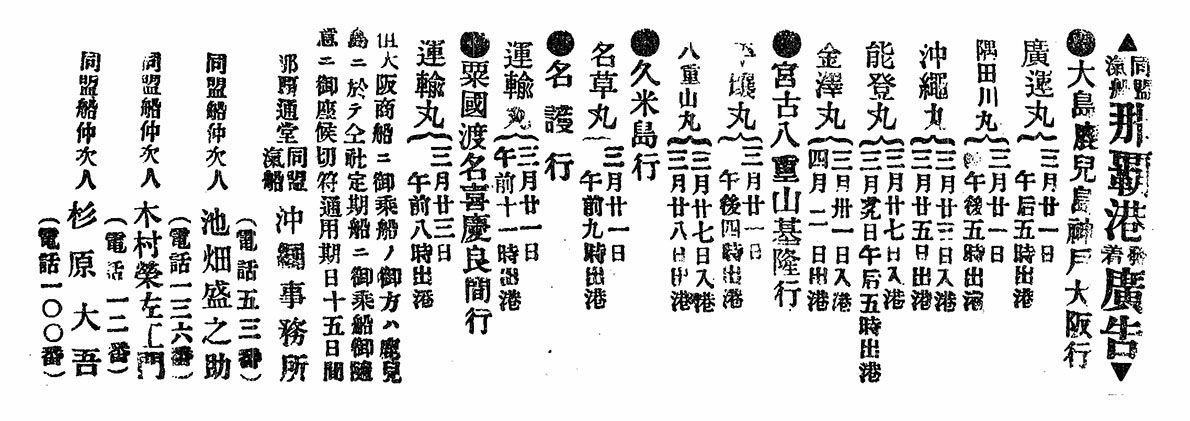 ▲同盟汽船那覇港發着廣告▼
●大島鹿兒島神戸大阪行
廣運丸 三月廿一日午后五時出港
隅田川丸 三月廿一日午後五時出港
沖繩丸 三月廿三日入港三月廿五日出港
能登丸 三月廿七日入港三月卅日午后五時出港
金澤丸 三月卅一日入港四月二日出港
●宮古八重山基隆行
丸 三月廿一日午後四時出港
八重山丸 三月廿七日入港三月廿八日出港
●久米島行
名草丸 三月廿一日午前九時出港
●名護行
運輸丸 三月廿一日午前十一時出港
●粟國渡名喜慶良間行
運輸丸 三月廿三日午前八時出港
但大阪商船ニ御乘船ノ御方ハ鹿兒
島ニ於テ仝社定期船ニ御乘船御隨
意ニ御座候切符通用期日十五日間
那覇通堂 同盟汽船 沖繩事務所
(電話五三番)
同盟船仲次人 池畑盛之助
(電話一三六番)
同盟船仲次人 木村榮左エ門
(電話一二番)
同盟船仲次人 杉原大吾
(電話一〇〇番)